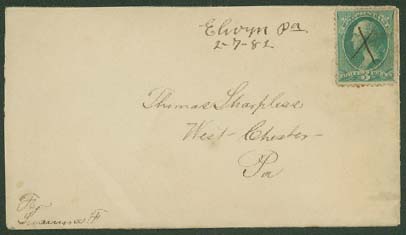 Elwyn Pa.
2-7-82
Thomas Sharpless
West-Chester
Pa